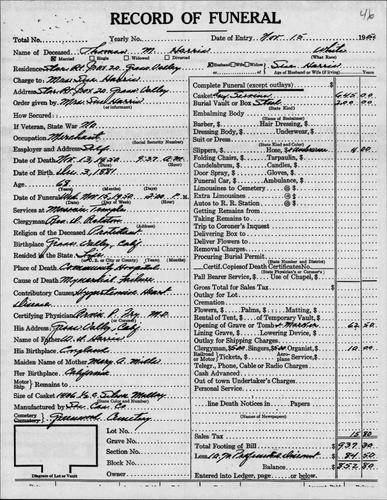 46
RECORD OF FUNERAL
Total No. Yearly No. Date of Entry Nov. 15 19
Name of Deceased Thomas M. Harris White
Married Single Widowed Divorced (What Race)
Residence Star Rt. Box 20, Grass Valley
Husband Wife of Sue Harris
Age of Husband or Wife (if living) Years
Charge to Mrs. Sue Harris
Address Star Rt. Box 20, Grass Valley
Order given by Mrs. Sue Harris
(or informant)
How Secured
If Veteran, State War No
Occupation Merchant
(Social Security Number)
Employer and Address Self
Date of Death Nov. 13, 1950 9:37 A.M.
Date of Birth Dec. 3, 1881
Age 68
(Years) (Months) (Days)
Date of Funeral Wed. Nov. 15, 1950 P.M.
Services at Masonic Temple
Clergyman Rev. W. Ralston
Religion of the Deceased Protestant
Birthplace Grass Valley, Calif.
Resided in the State Life
Place of Death Community Hospital
Cause of Death Myocardial Failure
Contributory Causes Hypertensive Heart
Disease
Certifying Physician M.D.
His Address Grass Valley, Calif.
Name of Father H. Harris
His Birthplace England
Maiden Name of Mother Mary A. Mills
Her Birthplace California
Motor Ship Remains to
Size of Casket Silver
(State Color and Number)
Manufactured by Cas. Co.
Cemetery Greenwood Cemetery
Lot No.
Grave No.
Section No.
Block No.
Owner
Diagram of Lot or Vault
Complete Funeral (except outlays) $
Casket 645.00
Burial Vault or Box Steel 200.00
(State Kind)
Embalming Body
(Name of Embalmer)
Barber, $ Hair Dressing, $
Dressing Body, $ Underwear, $
Suit or Dress
(State Kind and Color)
Slippers, $ Hose, $ 4.00
Folding Chairs, $ Tarpaulin, $
Candelabrum, $ Candles, $
Door Spray, $ Gloves, $
Funeral Car, $ Ambulance, $
Limousines to Cemetery @ $
Limousines @ $
Autos to R. R. Station @ $
Getting Remains from
Taking Remains to
Trip to Coroner's Inquest
Delivering Box to
Deliver Flowers to
Removal Charges
Procuring Burial Permit
(State Number and District)
Certif. Copies of Death Certificates No.
(State Physician's or Coroner's)
Pall Bearer Service, $ Use of Chapel, $
Gross Total for Sales Tax $
Outlay for Lot
Cremation
Flowers, $ Palms, $ Matting, $
Rental of Tent, $ of Temporary Vault, $
Opening of Grave or Tomb Marker 62.50
Lining Grave, $ Lowering Device, $
Outlay for Shipping Charges
Clergyman, $ Singers, $ Organist, $ 10.00
Railroad or Motor Tickets, $ Aeroplane Service, $
Telegr., Phone, Cable or Radio Charges
Cash Advanced
Out of town Undertaker's Charges
Personal Service
line Death Notices in Papers
(Names of Newspapers)
Sales Tax 15.80
Total Footing of Bill $937.30
Less 10% Discount 84.50
Balance $852.80
Entered into Ledger, page or below